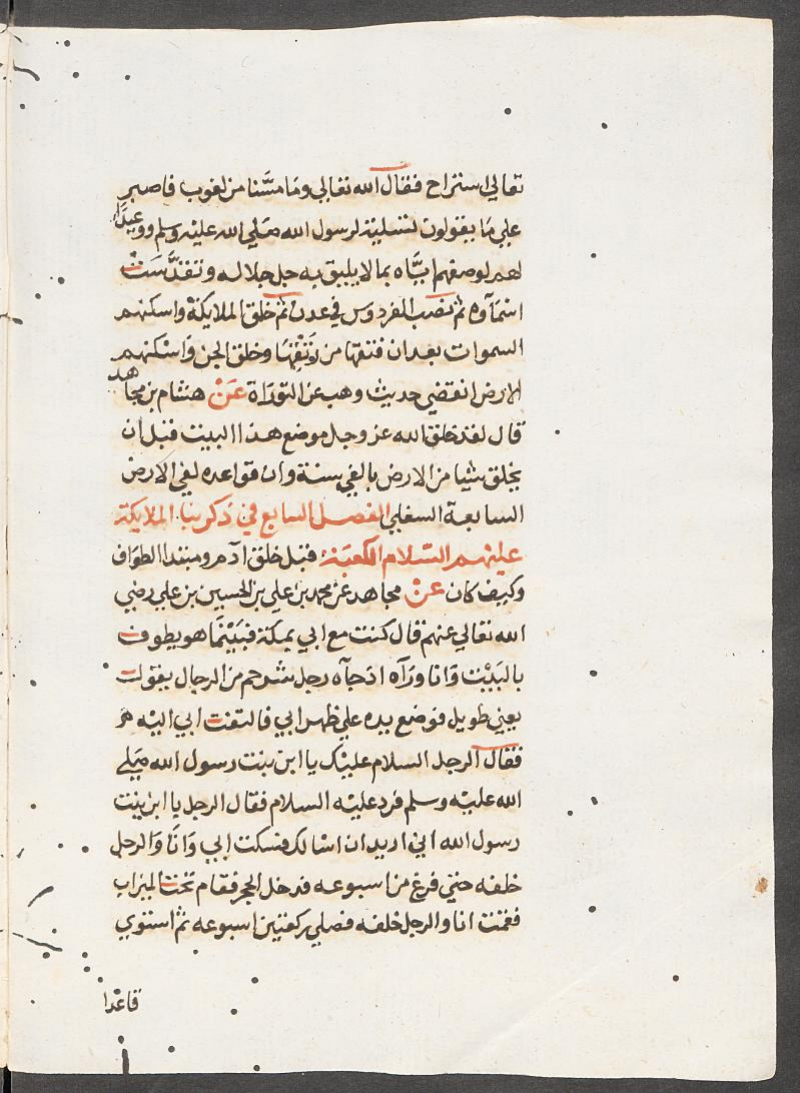 تعالي استراح فقال الله تعالي وما مسَّنا من لغوب فاصبر
علي ما يقولون تسلية لرسول الله صلي الله عليه وسلم ووعيدًا
لهم لوصفهم ايَّاه بما لا يليق به جل جلاله وتقدَّسَتْ
اسمآوه ثم نصب الفردوس في عدن ثم خلق الملايكة واسكنهم
السموات بعد ان فتقها من رَتْقِهَا وخلق الجن واسكنهم
الارض انقضي حديث وهب عن التوراة عَنْ هشام بن مجاهد
قال لقد خلق الله عز وجل موضع هذا البيت قبل ان
يخلق شيا من الارض بالفي سنة وان قواعده لفي الارض
السابعة السفلي الفصل السابع في ذكر بنا الملايكة
عليهم السلام الكعبة قبل خلق ادم ومبتدا الطواف
وكيف كان عنْ مجاهد عن محمد بن علي بن الحسين بن علي رضي
الله تعالي عنهم قال كنت مع ابي بمكة فبَيْنَما هو يطوف
بالبَيْت وَانا ورَآه اذ جآه رجل شرجم من الرجال يقول
يعني طويل فوضع يده علي ظهر ابي فالتفت ابي اليْه
فقال الرجل السلام عليْك يا ابن بنت رسول الله صلي
الله عليْه وسلم فرد عليْه السلام فقال الرجل يا ابن بنت
رسول الله اني اريد ان اسالك فسكت ابي وَانَا وَالرجل
خلفه حتي فرغ من اسبوعه فدخل الحجر فقام تحت الميزاب
فقمت انا والرجل خلفه فصلي ركعتين اسبوعه ثم استوي
قاعدا